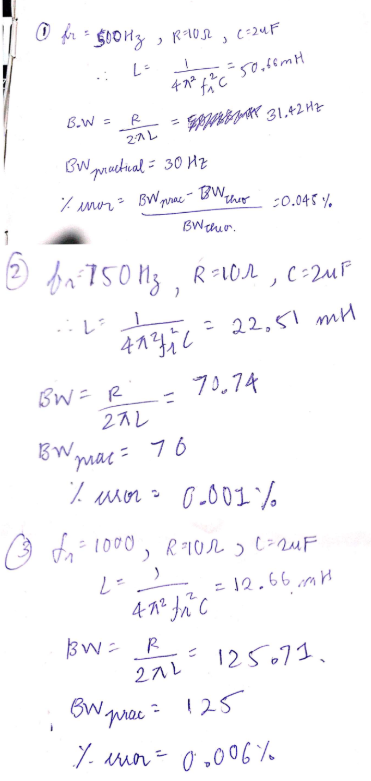 ① fr = 500Hz , R=10Ω , C=2uF
∴ L= 1 / 4π² fr² C = 50.66mH
B.W = R / 2πL = 31.42Hz
BW practical = 30 Hz
% error = BW prac - BW theo / BW theor. = 0.045 %
② fr=750Hz , R=10Ω , C=2uF
∴ L= 1 / 4π² fr² C = 22.51 mH
BW = R / 2πL = 70.74
BW prac = 70
% error = 0.001 %
③ fr = 1000 , R=10Ω , C=2uF
L = 1 / 4π² fr² C = 12.66 mH
BW = R / 2πL = 125.71.
BW prac = 125
% error = 0.006%